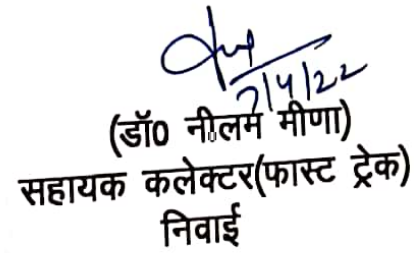 7/4/22
(डॉ0 नीलम मीणा)
सहायक कलेक्टर(फास्ट ट्रेक)
निवाई